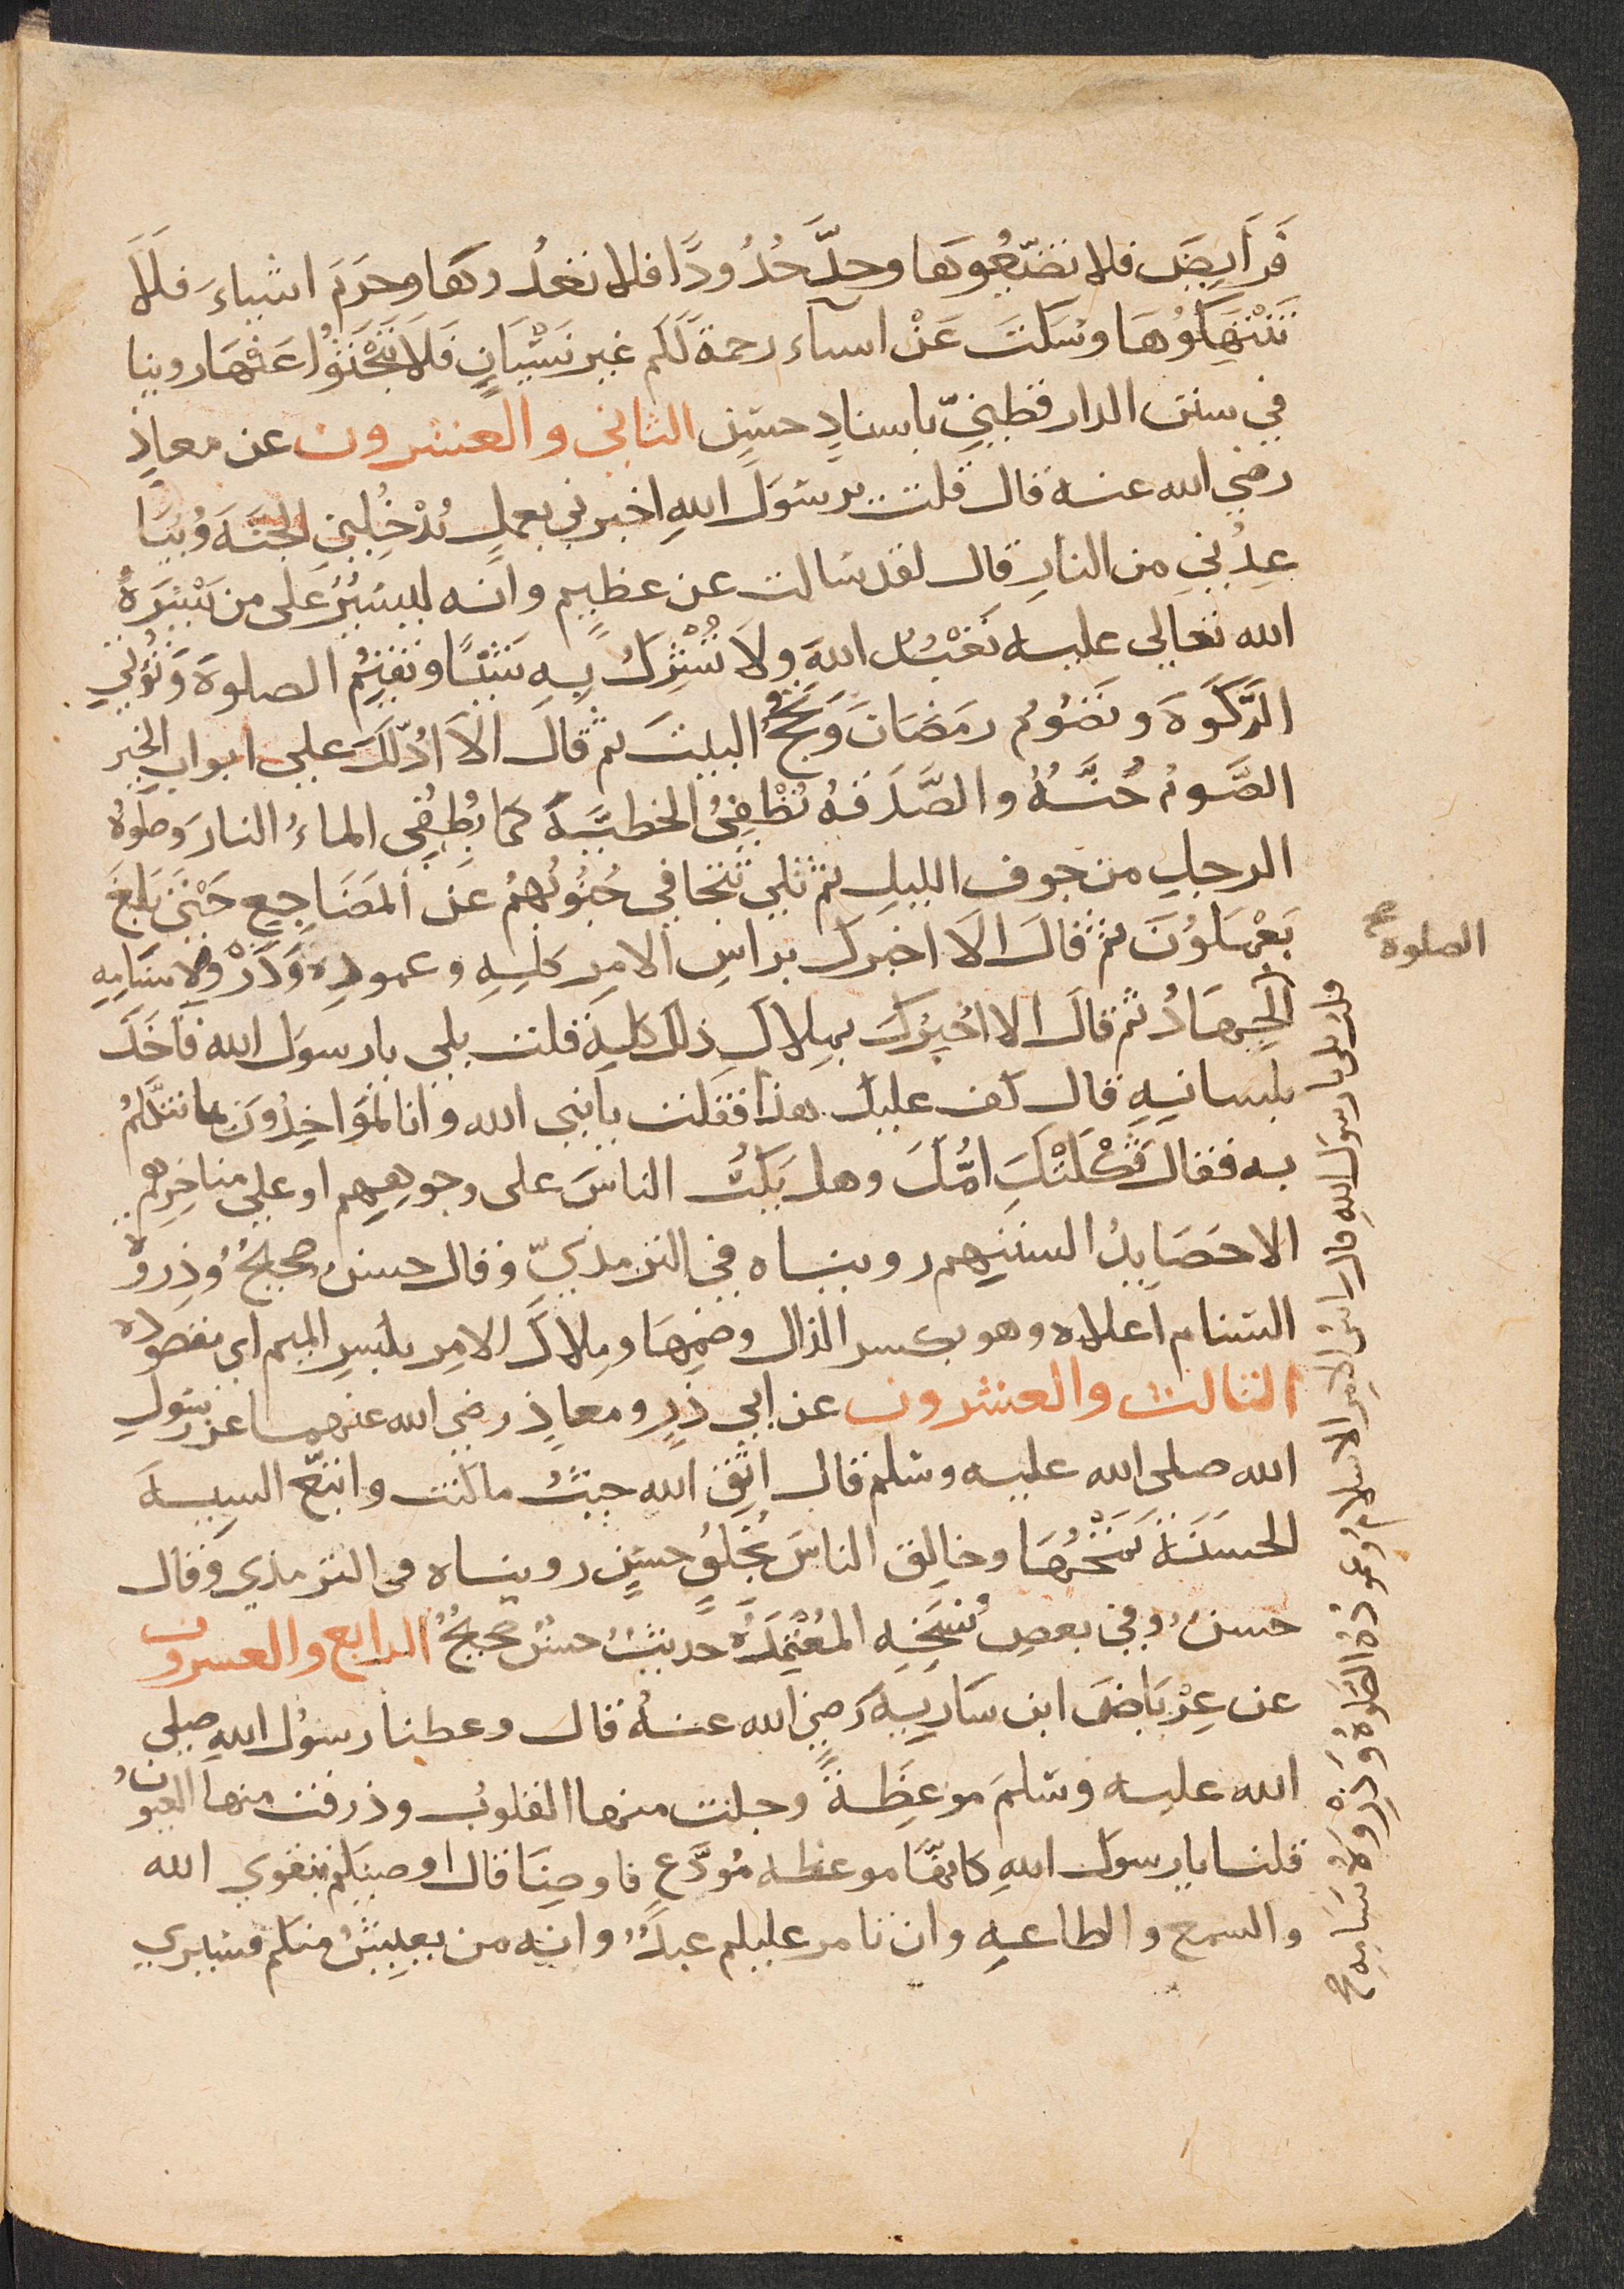 فَرَايِضَ فلا تضيّعُوهَا وحدَّ حُدُودًا فلا تعدُوهَا وحرَمَ اشياءَ فَلَا
تَنْتهَكُوُهَا وسَكتَ عَنْ اسآء رحمة لَكم غير نَسْيَانٍ فَلَا تَبْحَثوُا عَنْهَا روينا
في سنن الدارقطنيّ باسنادٍ حسَنٍ الثاني والعشرون عن معاذٍ
رضي الله عنه قال قلت يرسَوُلَ اللهِ اخبرني بعملٍ يُدْخِلُنِي الجنَةَ وُيبَا
عِدُنيِ من النارِ قال لقد سَالت عن عظيمٍ وانه ليسَيُرٌ على من يَسَّرَهُ
الله تعالي عليه تَعْبُدُ اللهَ ولَا تُشْرِكُ بِهِ شَيْئًا وتقيَمُ الصلوةَ وَتُؤتيِ
الزَّكَوةَ وتَصُوُمُ رمَضَانَ وَتحُجُّ البيتَ ثم قَالَ اَلاَ ادُلّكَ علي ابواب الخير
الصَّومُ جُنَّةٌ والصَّدَقهُ تُطْفِيُ الخطيَّةَ كما يُطْفِي الماءُ النارَ وصَلَوةُ
الرجلِ من جوف الليلِ ثم تلي تتجافي جُنُوبُهُمْ عَنِ المَضَاجِعِ حَتَي بَلغَ
يَعْمَلوُنَ ثم قالَ الَا اخبَرِكَ برأسِ الامِر كلِهِ وعمودِهِ وَذَرْوِةِ سَنَامِهِ
الِجهَادُ ثم قالَ الا اخُبِرُكَ بِمِلاكِ ذلك كلِهِ قلت بلي يارسوَل الله فاَخَذَ
بلسانِهِ قال كف عليك هذا فقلت يانبي الله وانا لَمُوَاخِذُونَ بما نتكَلمُ
به فقال ثَكَلتْكَ امُّكَ وهل يَكُبُّ الناسَ على وجوهِهِم او علي مناخِرِهم
الا حَصَايِدُ السنتِهِم رويناه في الترمذيّ وقال حسنٌ صحيحٌ وذِروةُ
السَنام اعلاه وهو بكسر الذال وضمِهَا ومِلاكُ الامِر بكسِرِ الميم اي مقصوده
الثالث والعشرون عن ابي ذرٍ ومعاذٍ رضي الله عنهما عن رسَولِ
الله صلى الله عليه وسَلم قال اتق الله حيثُ ما كنت واتبَع السيِيةَ
الحسَنَةَ تَمْحُهَا وخالِق الناسَ بخُلقٍ حسَنٍ رويناه في الترمذي وقال
حسنٌ وفي بعضِ نُسَخِهِ المُعْتمَدَةِ حديثٌ حسَنٌ صحيحٌ الرابع والعسرون
عن عِرْبَاضَ ابن سَارِيِهَ رَضِيَ الله عنهُ قال وعظنا رسوُل اللهِ صلي
الله عليه وسَلمَ موعِظِةً وجلت منها القلوُب وذرفت منها العيُونُ
قلنا يارسوَل اللهِ كانهَّا موعظه مُودَّعٍ فاوصِنَا قال اوصيَكم بتقوي الله
والسمع والطاعهِ وان تامر عليكم عبدٌ وانه من يعِيِشُ منكم فسَيري
الصلوة
قلت بلى يارسوَل اللهِ قال راسُ الامِر الاسلامُ وعمودُهُ الصَّلوةُ وَذِرْوَةُ سَنَامِهِ